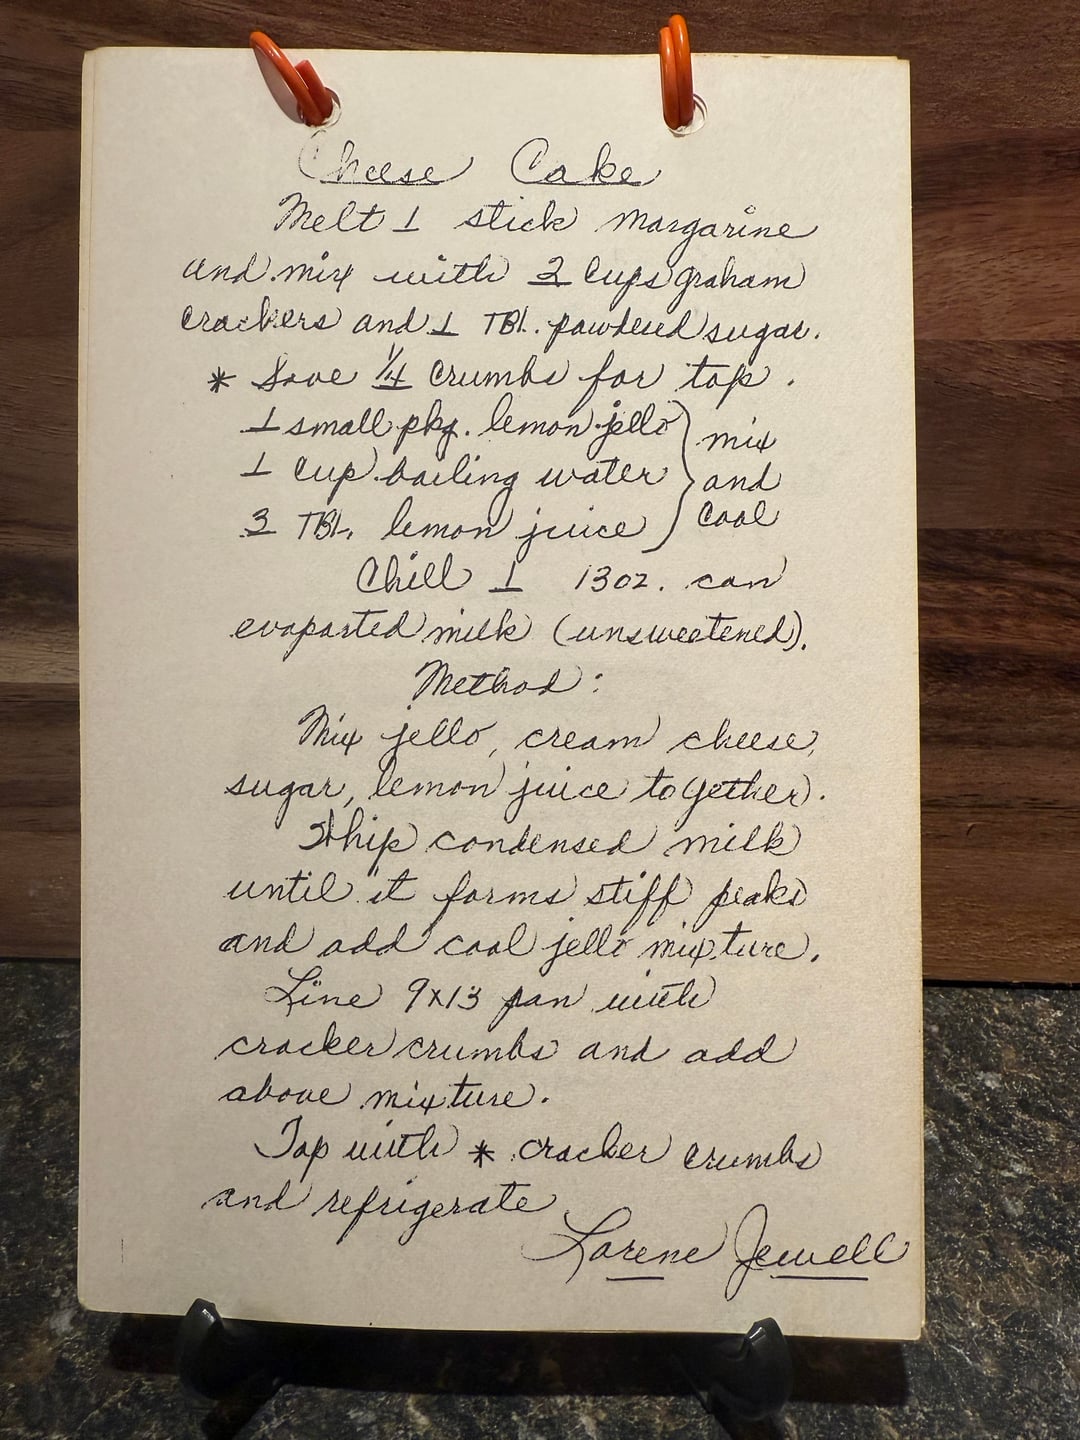 Cheese Cake
Melt 1 stick margarine
and mix with 2 cups graham
crackers and 1 TBl. powdered sugar.
* Save 1/4 crumbs for top.
1 small pkg. lemon jello } mix
1 cup boiling water } and
3 TBl. lemon juice } cool
Chill 1 13oz. can
evaparted milk (unsweetened).
Method:
Mix jello, cream cheese,
sugar, lemon juice together.
Whip condensed milk
until it forms stiff peaks
and add cool jello mixture.
Line 9x13 pan with
cracker crumbs and add
above mixture.
Top with * cracker crumbs
and refrigerate
Lorene Jewell